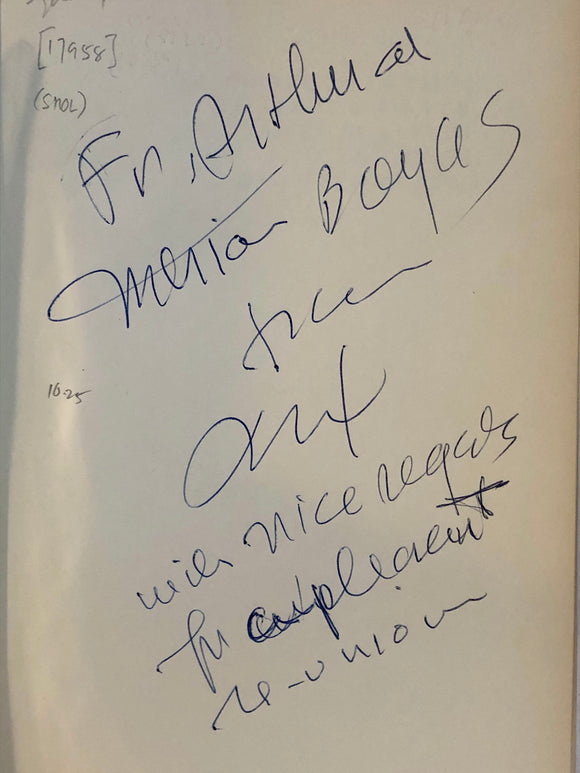 [17958]
(SnOL)
For Arthur and
Merion Boyars
from
16.25
with nice regards
for a pleasant
re-union